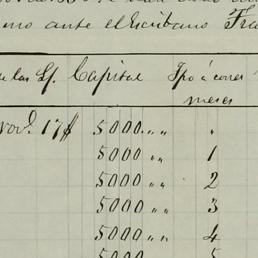 smo ante el Escribano Fra
de las Lf. Capital Tpo á correr
meses
Novo. 17 $ 5000 „ „ „
5000 „ „ 1
5000 „ „ 2
5000 „ „ 3
5000 „ „ 4
5000 5